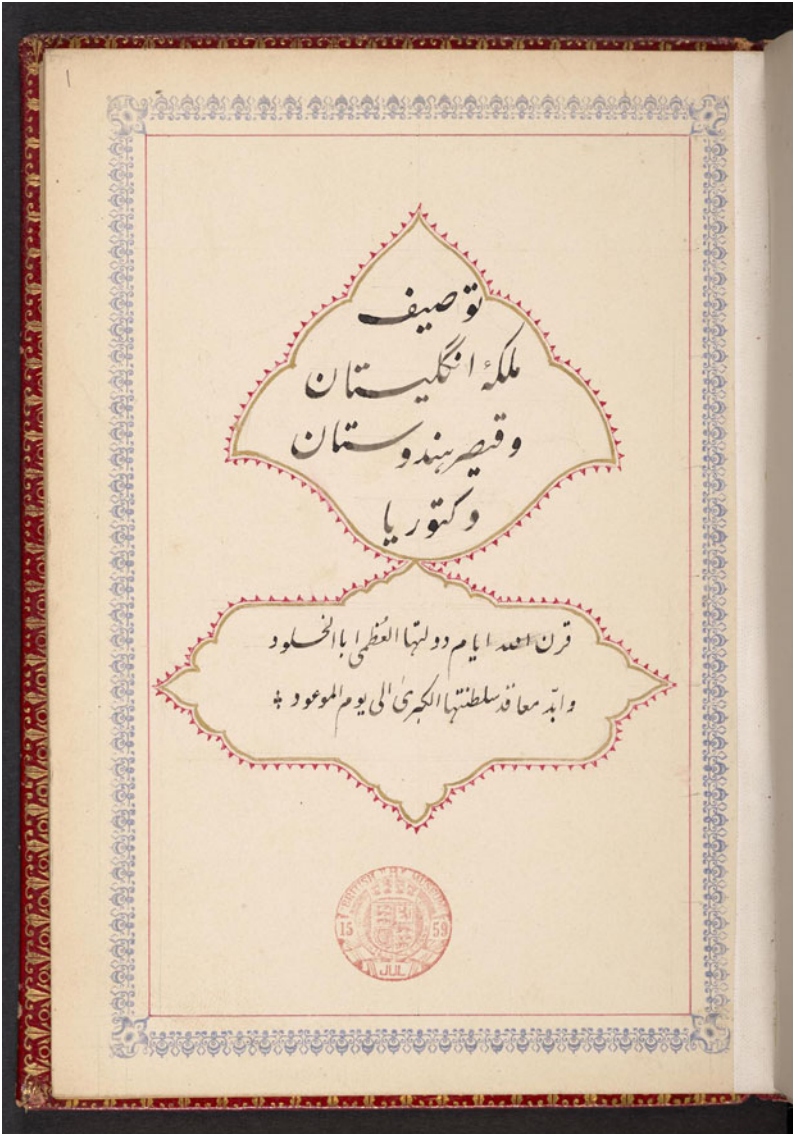 1
توصیف
ملکهٔ انگلیستان
و قیصر هندوستان
وکتوریا
قرن الله ایام دولتها العُظمی باالخلود
وابّد معاقد سلطنتها الکبریٰ الی یوم الموعود
BRITISH MUSEUM
15 59
JUL